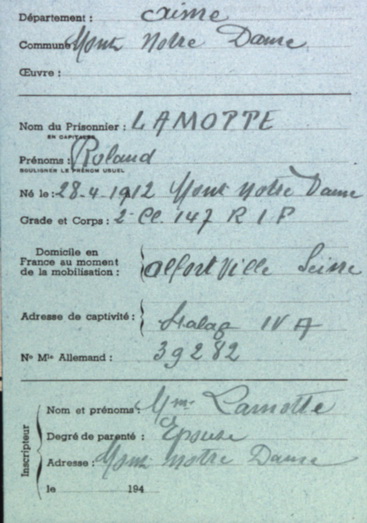 Département : aisne
Commune Mont Notre Dame
Œuvre :
Nom du Prisonnier : LAMOTTE
EN CAPITALES
Prénoms : Roland
SOULIGNER LE PRÉNOM USUEL
Né le : 28-4-1912 Mont Notre Dame
Grade et Corps : 2e Cl. 147 R I F
Domicile en
France au moment
de la mobilisation : alfortville Seine
Adresse de captivité : Stalag IV A
No Mle Allemand : 39282
Inscripteur
Nom et prénoms : Mme Lamotte
Degré de parenté : Epouse
Adresse : Mont Notre Dame
le 194